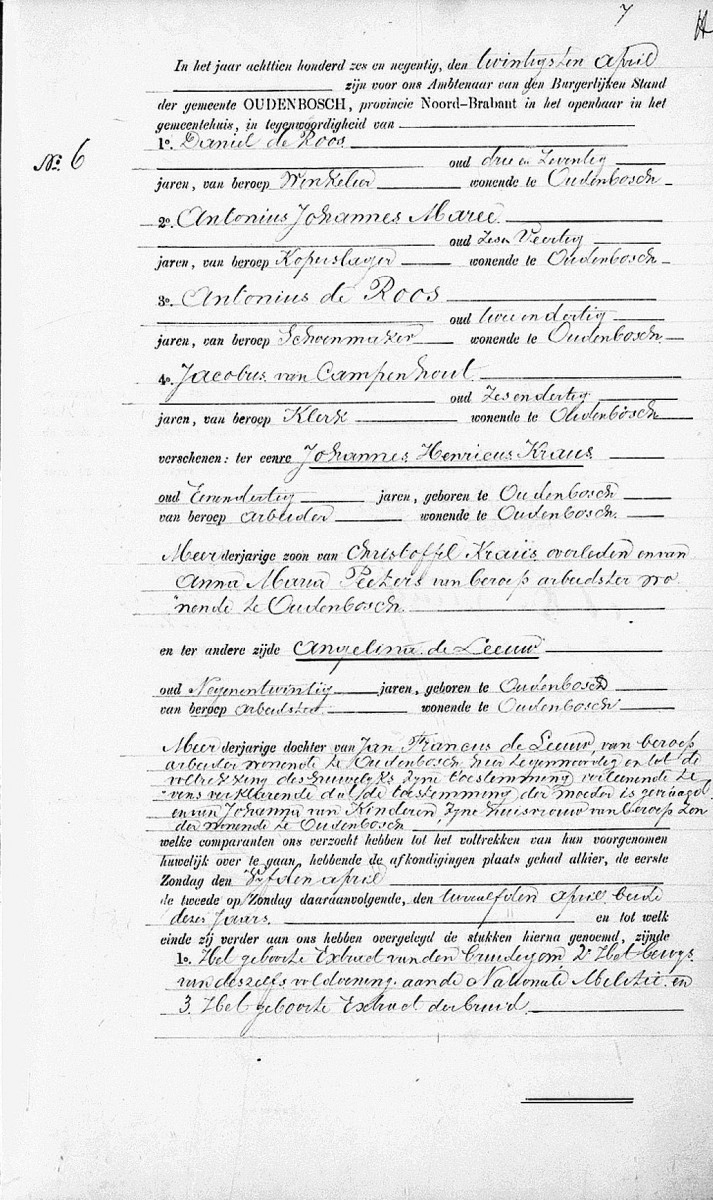 7
No. 6
In het jaar achttien honderd zes en negentig, den twintigsten april
zijn voor ons Ambtenaar van den Burgerlijken Stand
der gemeente OUDENBOSCH, provincie Noord-Brabant in het openbaar in het
gemeentehuis, in tegenwoordigheid van
1o. Daniel de Roos
oud drie en Zeventig
jaren, van beroep Winkelier wonende te Oudenbosch
2o. Antonius Johannes Maree
oud Zesen Veertig
jaren, van beroep Koperslager wonende te Oudenbosch
3o. Antonius de Roos
oud twee en dertig
jaren, van beroep Schoenmaker wonende te Oudenbosch
4o. Jacobus van Campenhout
oud Zesendertig
jaren, van beroep Klerk wonende te Oudenbosch
verschenen: ter eenre Johannes Henricus Kraus
oud Eenendertig jaren, geboren te Oudenbosch
van beroep arbeider wonende te Oudenbosch.
Meer derjarige zoon van Christoffel Kraus overleden en van
Anna Maria Peeters van beroep arbeidster wo
"nende te Oudenbosch
en ter andere zijde Angelina de Leeuw
oud Negenentwintig jaren, geboren te Oudenbosch
van beroep arbeidster wonende te Oudenbosch
Meer derjarige dochter van Jan Francus de Leeuw, van beroep
arbeider wonende te Oudenbosch hier tegenwoordig en tot de
voltrekking des huwelijks zyne toestemming verleenende te
vens verklarende dat de toestemming der moeder is gevraagd
en van Johanna van Kinderen zyne huisvrouw van beroep Zon
der wonende te Oudenbosch
welke comparanten ons verzocht hebben tot het voltrekken van hun voorgenomen
huwelijk over te gaan, hebbende de afkondigingen plaats gehad alhier, de eerste
Zondag den Vyfden april
de tweede op Zondag daaraanvolgende, den twaalfden april beide
dezes Jaars. en tot welk
einde zij verder aan ons hebben overgelegd de stukken hierna genoemd, zijnde
1o. Het geboorte Extract van den bruidegom 2o Het bewys
van deszelfs voldoening aan de Nationale Melitie en
3. Het geboorte Extract der bruid